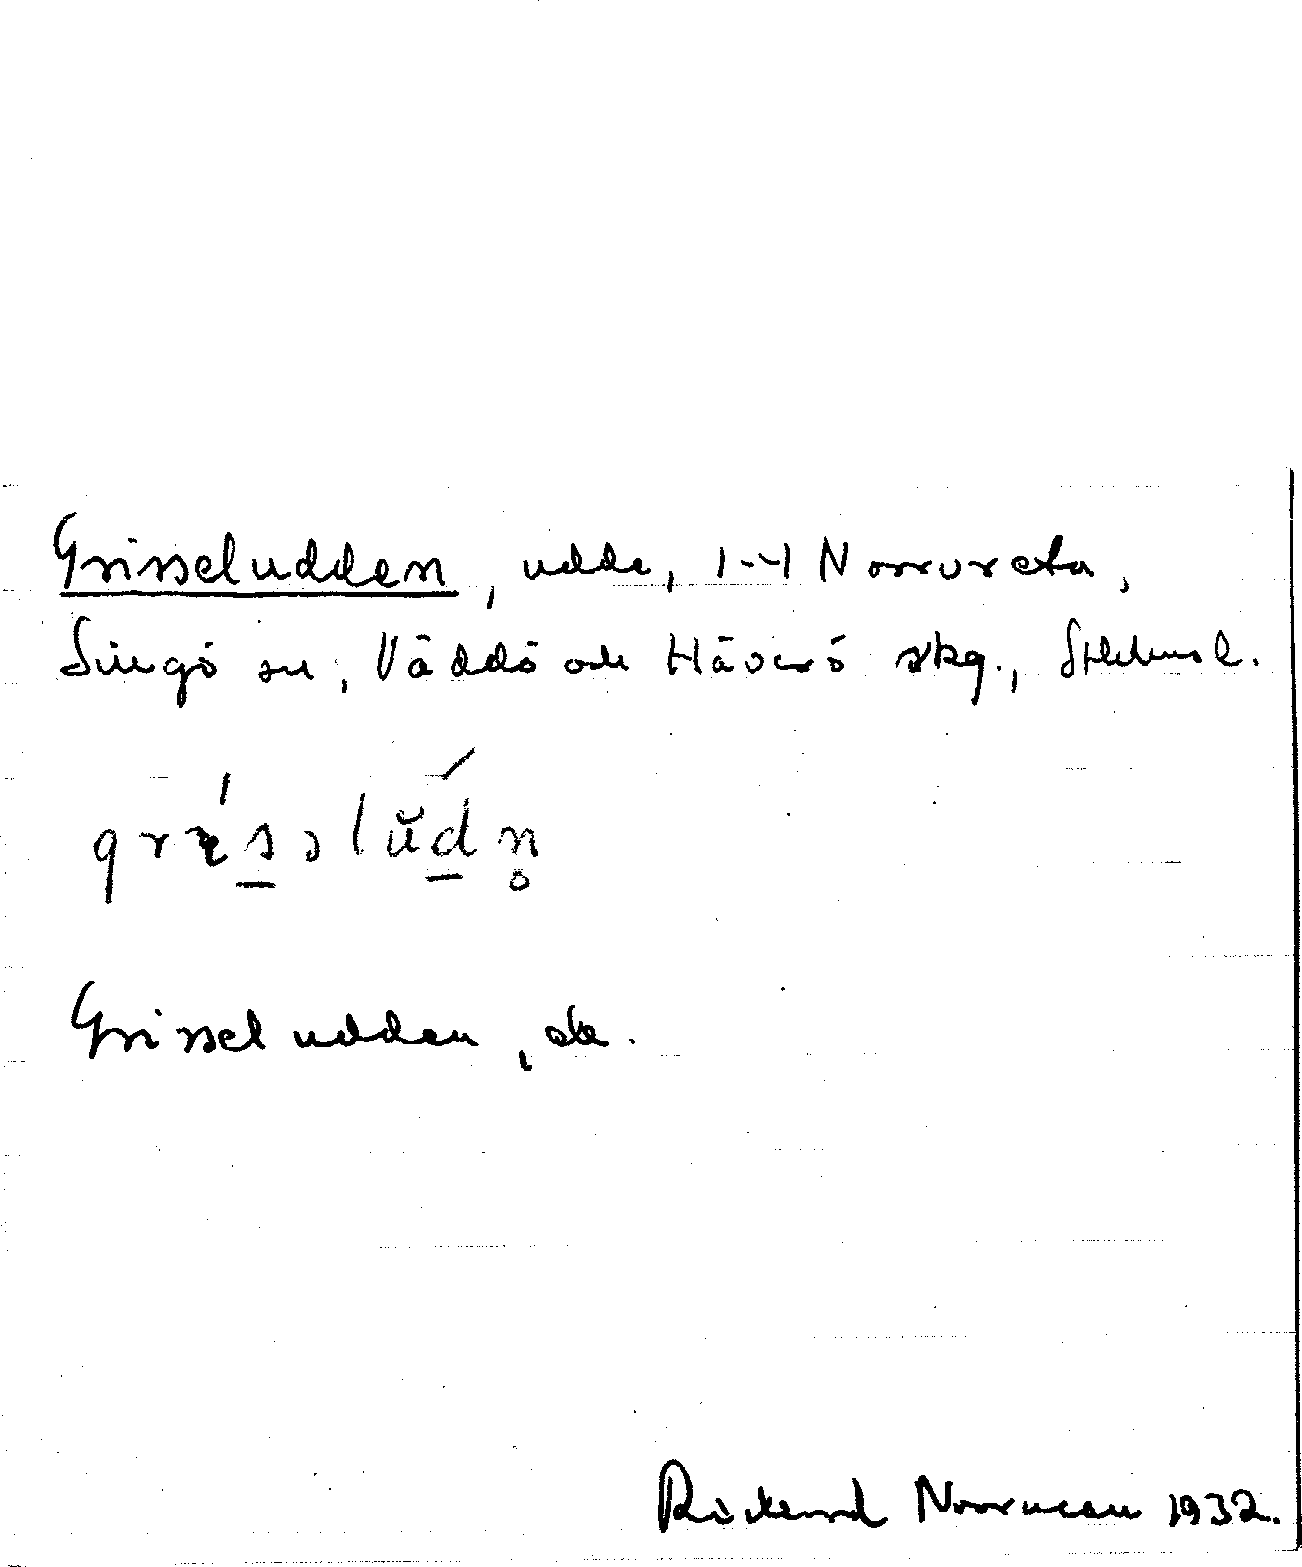 Grisseludden, udde, 1-4 Norrvreta,
Singö sn, Väddö och Häverö skg., Sthlms l.
grı́səlŭ́dn̥
Grisseludden, ate.
Rickard Norrman 1932.